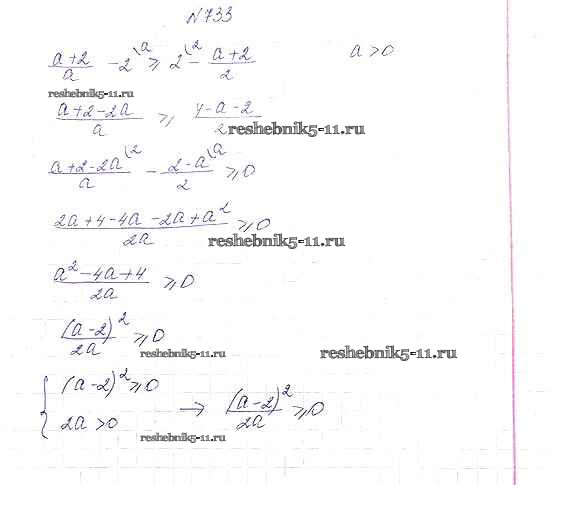 №733
a+2/a - 2\a ≥ 2\2 - a+2/2 a > 0
reshebnik5-11.ru
a+2-2a/a ≥ 4-a-2/2
reshebnik5-11.ru
a+2-2a\2/a - 2-a\a/2 ≥ 0
2a+4-4a-2a+a²/2a ≥ 0
reshebnik5-11.ru
a²-4a+4/2a ≥ 0
(a-2)²/2a ≥ 0
reshebnik5-11.ru reshebnik5-11.ru
{ (a-2)² ≥ 0
2a > 0 → (a-2)²/2a ≥ 0
reshebnik5-11.ru